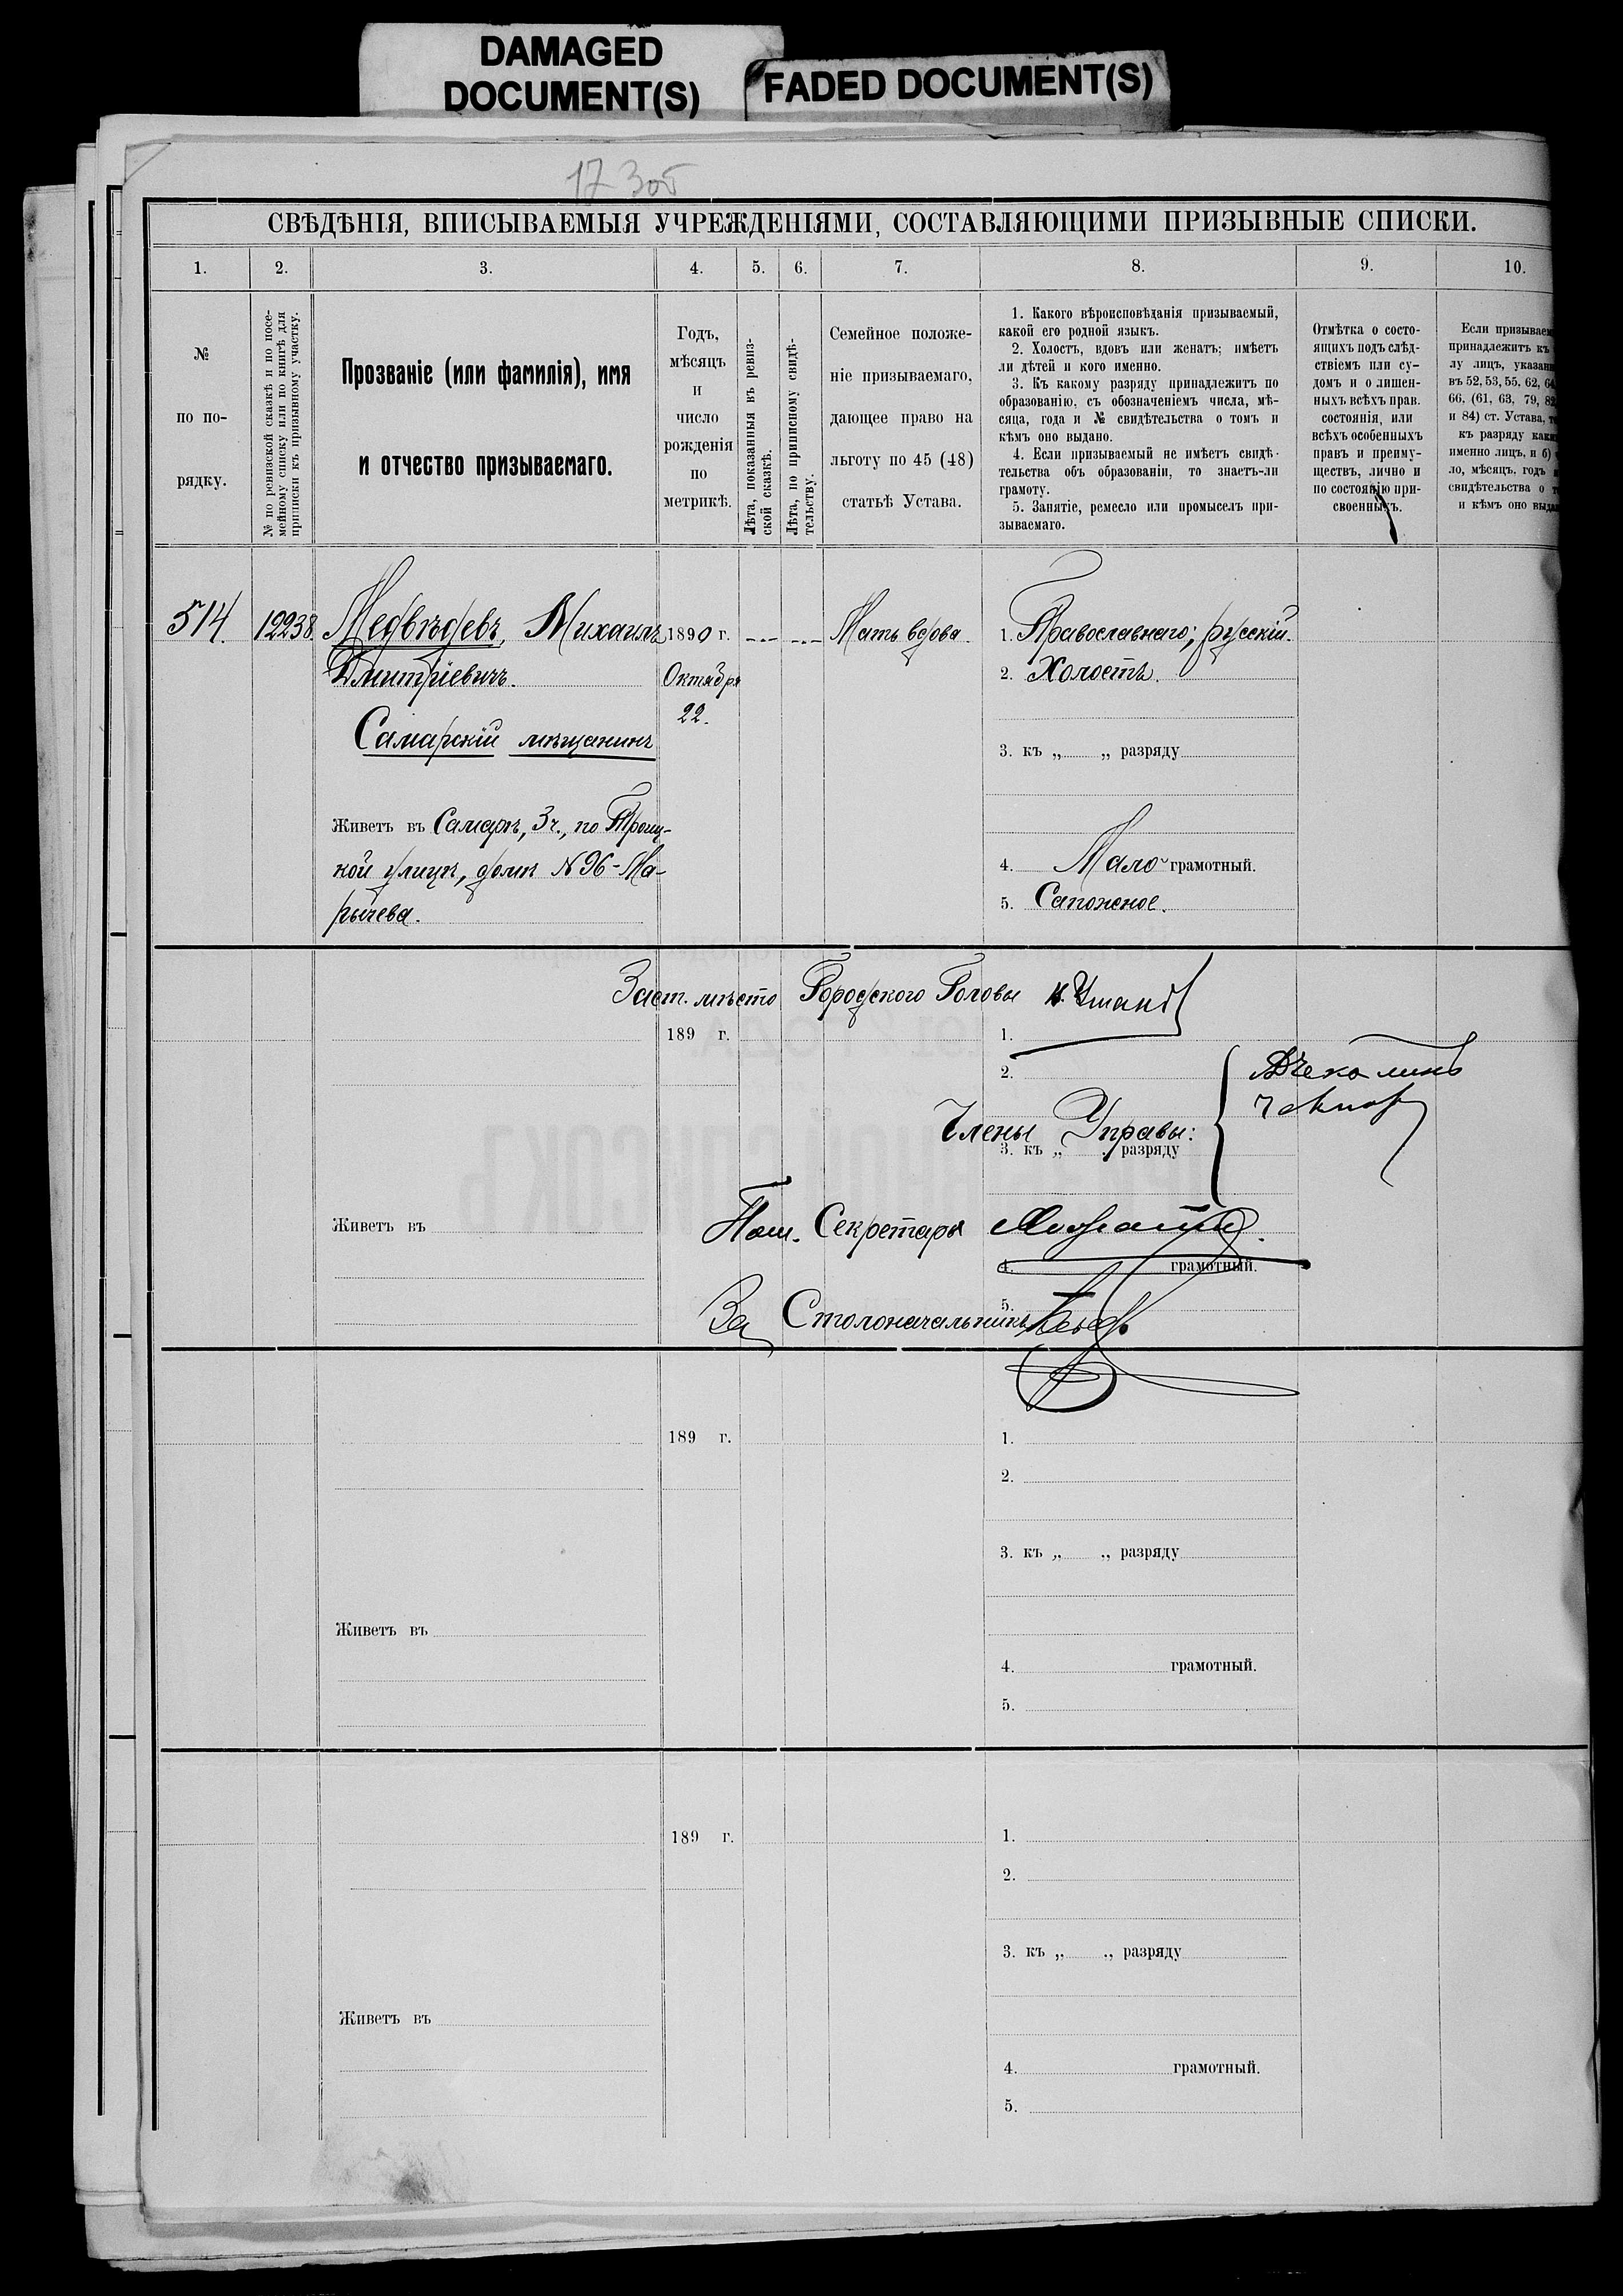 DAMAGED
DOCUMENT(S)
FADED DOCUMENT(S)
173об
СВѢДѢНІЯ, ВПИСЫВАЕМЫЯ УЧРЕЖДЕНІЯМИ, СОСТАВЛЯЮЩИМИ ПРИЗЫВНЫЕ СПИСКИ.
1. 2. 3. 4. 5. 6. 7. 8. 9. 10.
№
по по-
рядку.
№ по ревизской сказкѣ и по посе-
мейному списку или по книгѣ для
приписки къ призывному участку.
Прозваніе (или фамилія), имя
и отчество призываемаго.
Годъ,
мѣсяцъ
и
число
рожденія
по
метрикѣ.
Лѣта, показанныя въ ревиз-
ской сказкѣ.
Лѣта, по приписному свидѣ-
тельству.
Семейное положе-
ніе призываемаго,
дающее право на
льготу по 45 (48)
статьѣ Устава.
1. Какого вѣроисповѣданія призываемый,
какой его родной языкъ.
2. Холостъ, вдовъ или женатъ; имѣетъ
ли дѣтей и кого именно.
3. Къ какому разряду принадлежитъ по
образованію, съ обозначеніемъ числа, мѣ-
сяца, года и № свидѣтельства о томъ и
кѣмъ оно выдано.
4. Если призываемый не имѣетъ свидѣ-
тельства объ образованіи, то знаетъ-ли
грамоту.
5. Занятіе, ремесло или промыселъ при-
зываемаго.
Отмѣтка о состо-
ящихъ подъ слѣд-
ствіемъ или су-
домъ и о лишен-
ныхъ всѣхъ прав.
состоянія, или
всѣхъ особенныхъ
правъ и преиму-
ществъ, лично и
по состоянію при-
своенныхъ.
Если призываем
принадлежитъ къ
лу лицъ, указан
въ 52, 53, 55, 62, 64
66, (61, 63, 79, 82
и 84) ст. Устава, то
къ разряду каки
именно лицъ, и б)
ло, мѣсяцъ, годъ
свидѣтельства о
и кѣмъ оно выда
514. 12238. Медвѣдевъ, Михаилъ 1890 г. Мать вдова. 1. Православнаго; русскій.
Дмитріевичъ. Октября 2. Холостъ.
22.
Самарскій мѣщанинъ
3. къ „ „ разряду
Живетъ въ Самарѣ, 3ч., по Троиц-
кой улицѣ, домъ № 96 - Ма-
рычева.
4. Мало грамотный.
5. Сапожное.
Заст. мѣсто Городского Головы
189 г. 1.
2.
Члены Управы:
3. къ „ „ разряду
Живетъ въ Пом. Секретаря
4. грамотный.
5.
За Столоначальникъ
189 г. 1.
2.
3. къ „ „ разряду
Живетъ въ
4. грамотный.
5.
189 г. 1.
2.
3. къ „ „ разряду
Живетъ въ
4. грамотный.
5.